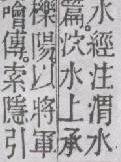 水經注渭水
篇。泬水上承
櫟陽。以將軍
噲傳。索隱引